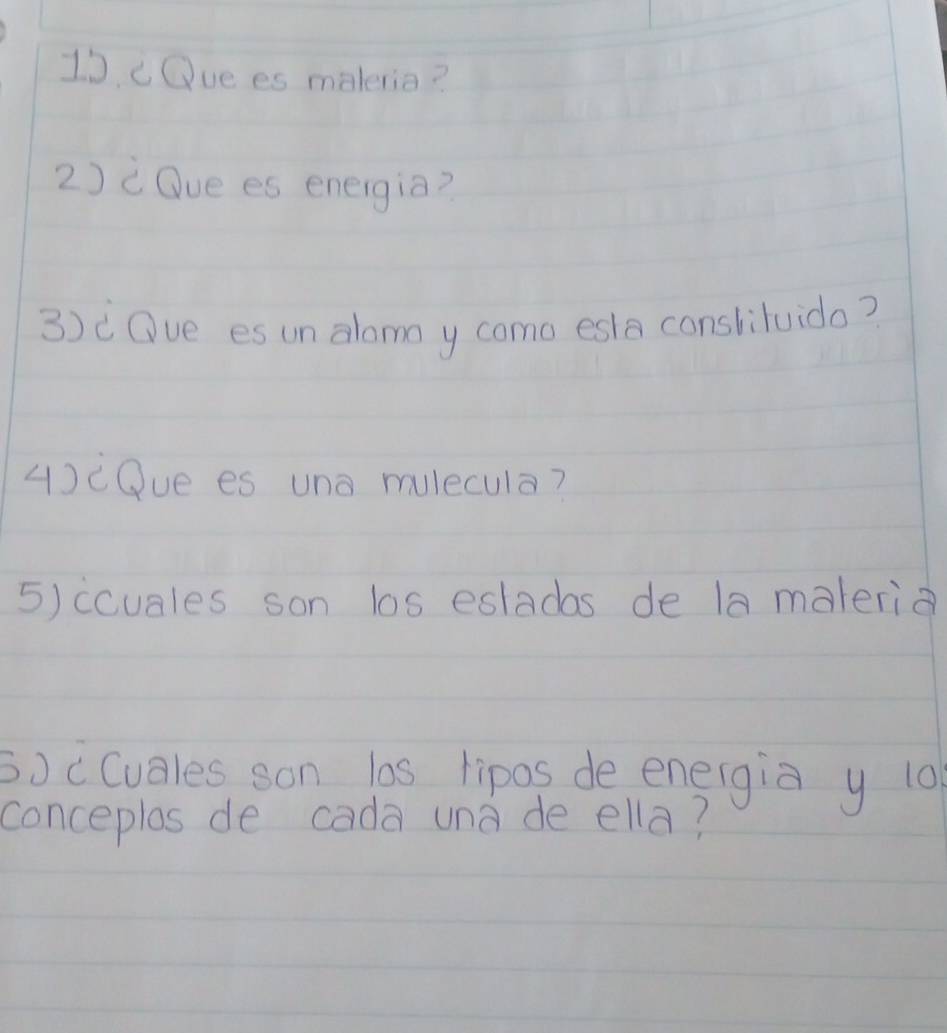 1). ¿Que es materia?
2) ¿Que es energia?
3) ¿Que es un atomo y como esta constituido?
4) ¿Que es una mulecula?
5) ¿cuales son los estados de la materia
6) ¿Cuales son los tipos de energia y los
conceptos de cada una de ella?